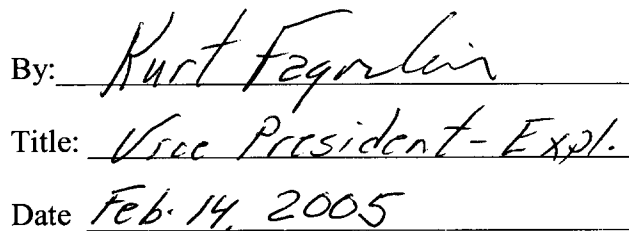 By: Kurt
Title: Vice President - Expl.
Date Feb. 14, 2005